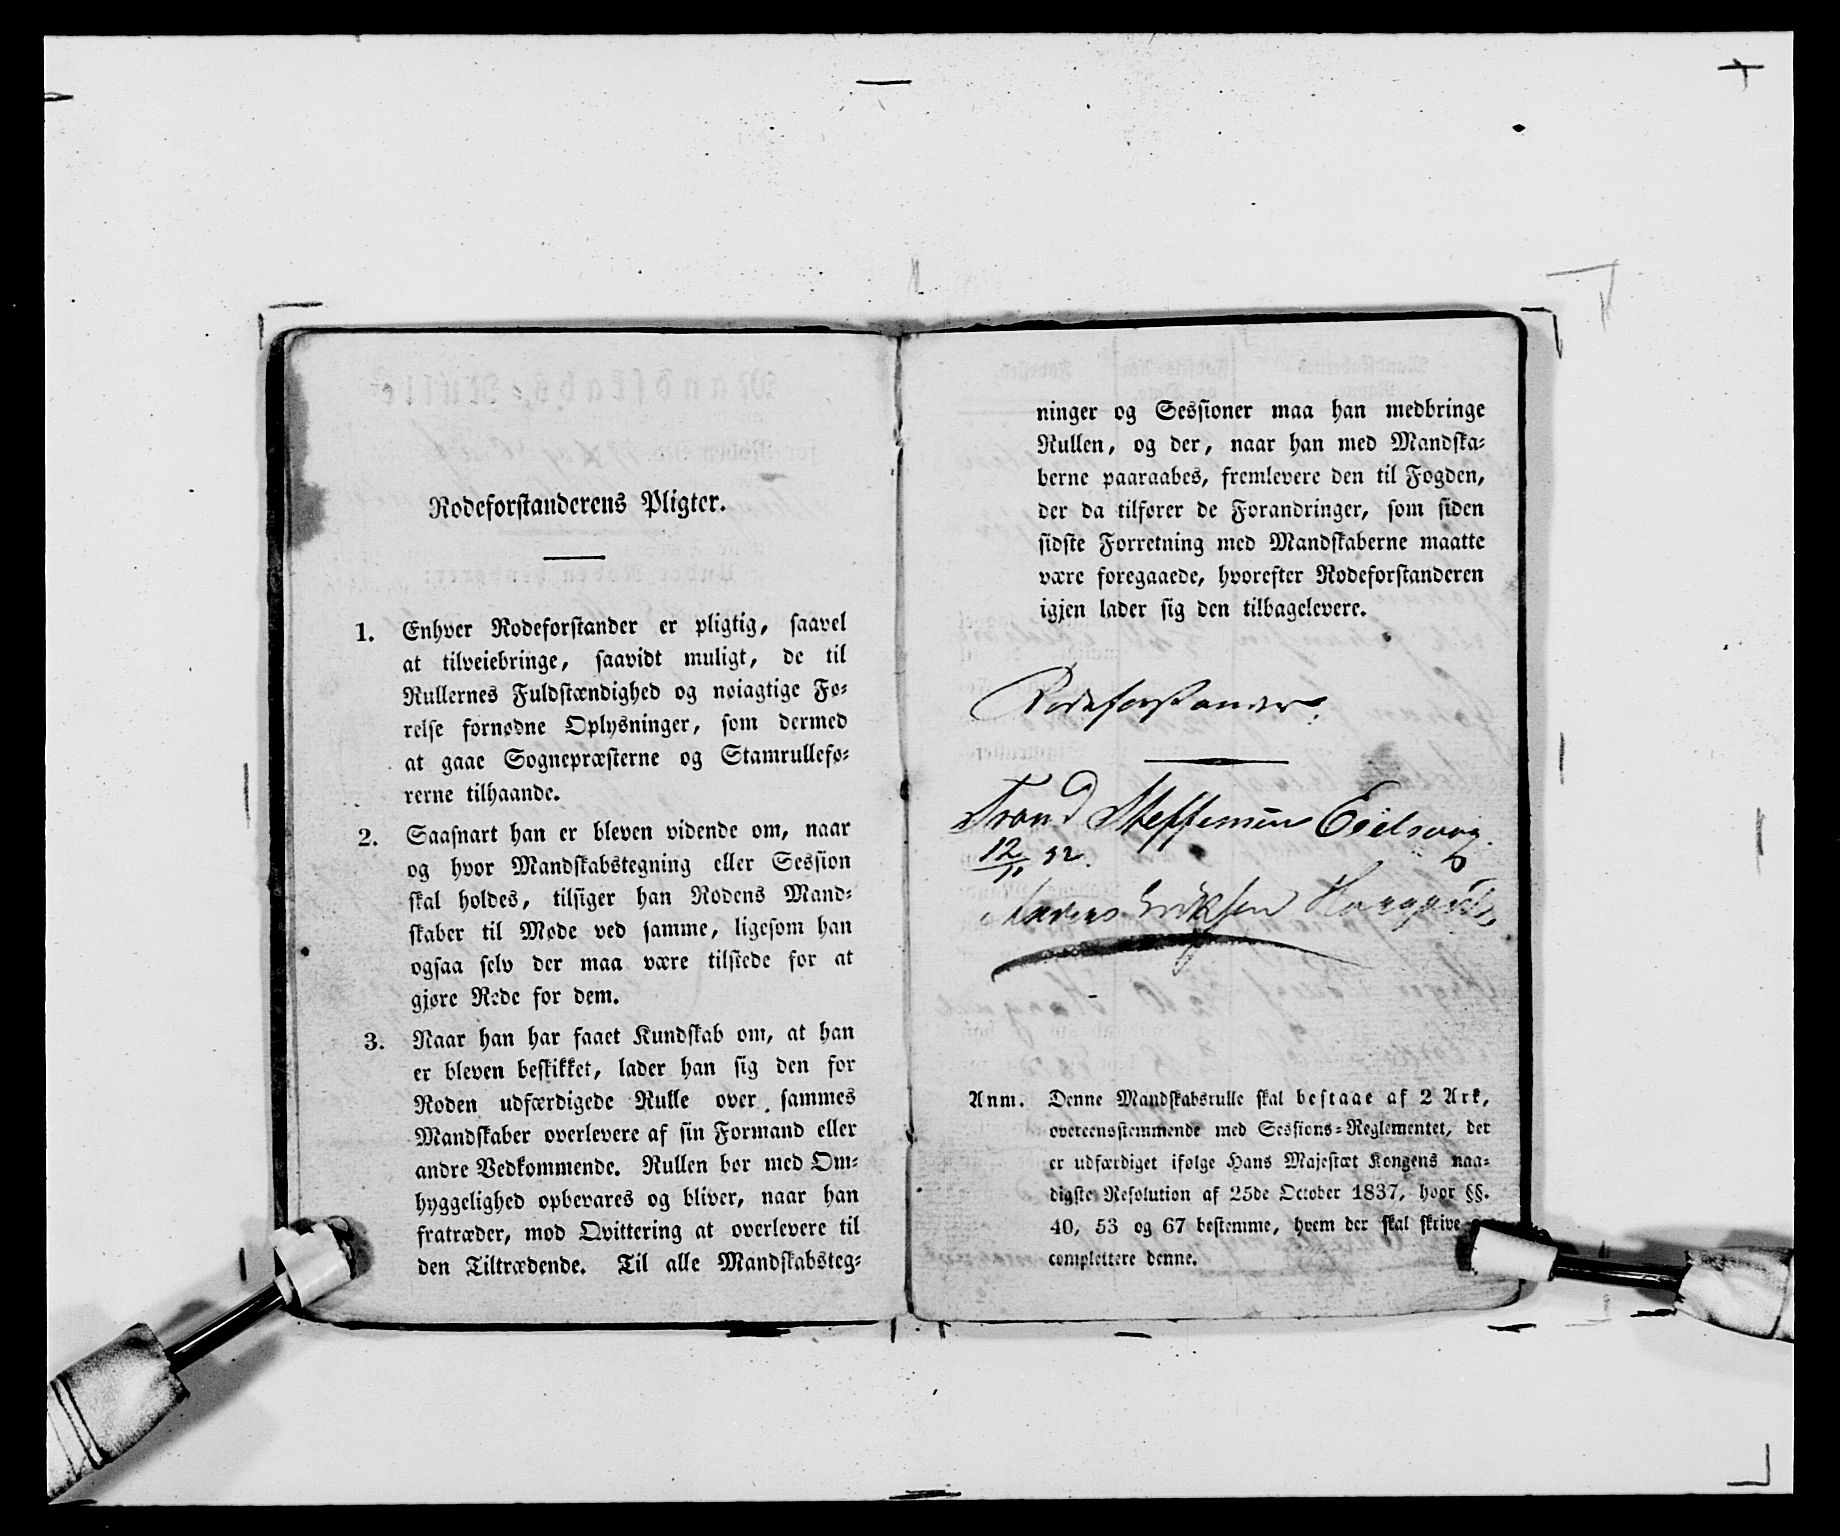 Rodeforstanderens Pligter.
1. Enhver Rodeforstander er pligtig, saavel
at tilveiebringe, saavidt muligt, de til
Rullernes Fuldstændighed og nøiagtige Fø-
relse fornødne Oplysninger, som dermed
at gaae Sognepræsterne og Stamrullefø-
rerne tilhaande.
2. Saasnart han er bleven vidende om, naar
og hvor Mandskabstegning eller Session
skal holdes, tilsiger han Rodens Mand-
skaber til Møde ved samme, ligesom han
ogsaa selv der maa være tilstede for at
gjøre Rede for dem.
3. Naar han har faaet Kundskab om, at han
er bleven beskikket, lader han sig den for
Roden udfærdigede Rulle over sammes
Mandskaber overlevere af sin Formand eller
andre Vedkommende. Rullen bør med Om-
hyggelighed opbevares og bliver, naar han
fratræder, mod Qvittering at overlevere til
den Tiltrædende. Til alle Mandskabsteg-
ninger og Sessioner maa han medbringe
Rullen, og der, naar han med Mandska-
berne paaraabes, fremlevere den til Fogden,
der da tilfører de Forandringer, som siden
sidste Forretning med Mandskaberne maatte
være foregaaede, hvorefter Rodeforstanderen
igjen lader sig den tilbagelevere.
Rodeforstander.
Trond Steffensen
12/11 52.
Eriksen
Anm. Denne Mandskabsrulle skal bestaae af 2 Ark,
overeensstemmende med Sessions-Reglementet, der
er udfærdiget ifølge Hans Majestæt Kongens naa-
digste Resolution af 25de October 1837, hvor §§.
40, 53 og 67 bestemme, hvem der skal skrive
complettere denne.